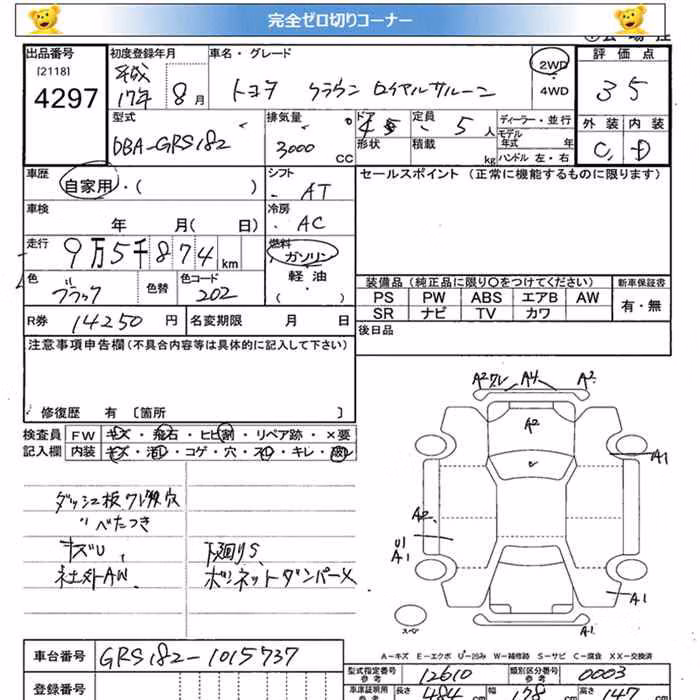 完全ゼロ切りコーナー
出品番号
[2118]
4297
初度登録年月
平成
17年 8月
車名・グレード
トヨタ クラウン ロイヤルサルーン
2WD
4WD
評価点
3 5
外装 内装
C D
型式
DBA-GRS182
排気量
3000 CC
ドア
形状
定員
5人
積載
kg
ディーラー・並行
モデル
年式 年
ハンドル 左・右
車歴
自家用・( )
シフト
AT
セールスポイント (正常に機能するものに限ります)
車検
年 月( 日)
冷房
AC
走行
9万5千874km
燃料
ガソリン
軽油
・( )
色
ブラック
色替
色コード
202
装備品(純正品に限り○をつけてください)
新車保証書
PS PW ABS エアB AW
SR ナビ TV カワ
有・無
R券 14250円
名変期限 月 日
後日品
注意事項申告欄(不具合内容等は具体的に記入して下さい)
修復歴 有 〔箇所 〕
検査員 FW キズ・飛石・ヒビ割・リペア跡・×要
記入欄 内装 キズ・汚レ・コゲ・穴・スレ・キレ・破レ
ダッシュ板クレ吸穴
〃べたつき
キズU
社外AW
下廻りS
ボンネットダンパーX
A2クレ A4 A2
A2
A1
A2
U1
A1
A1
A1
スペア
A-キズ E-エクボ U-凹み W-補修跡 S-サビ C-腐食 XX-交換済
車台番号 GRS182-1015737
登録番号
型式指定番号
参考
12610
類別区分番号
参考
0003
車庫証明用
参考
長さ 484cm 幅 178cm 高さ 147cm